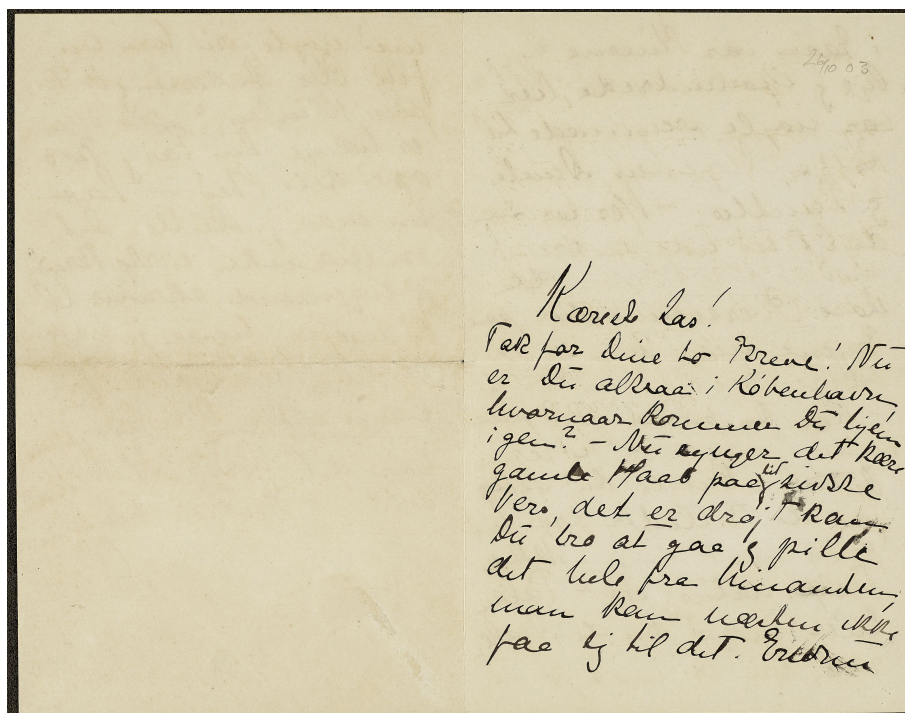 26/10 03
Kæreste Las!
Tak for Dine to Breve! Nu
er Du altsaa i København,
hvornaar kommer Du hjem
igen? - Nu synger det kære
gamle Haab paa sit sidste
Vers, det er drøjt kan
Du tro at gaa & pille
det hele fra hinanden,
man kan næsten ikke
faa sig til det.